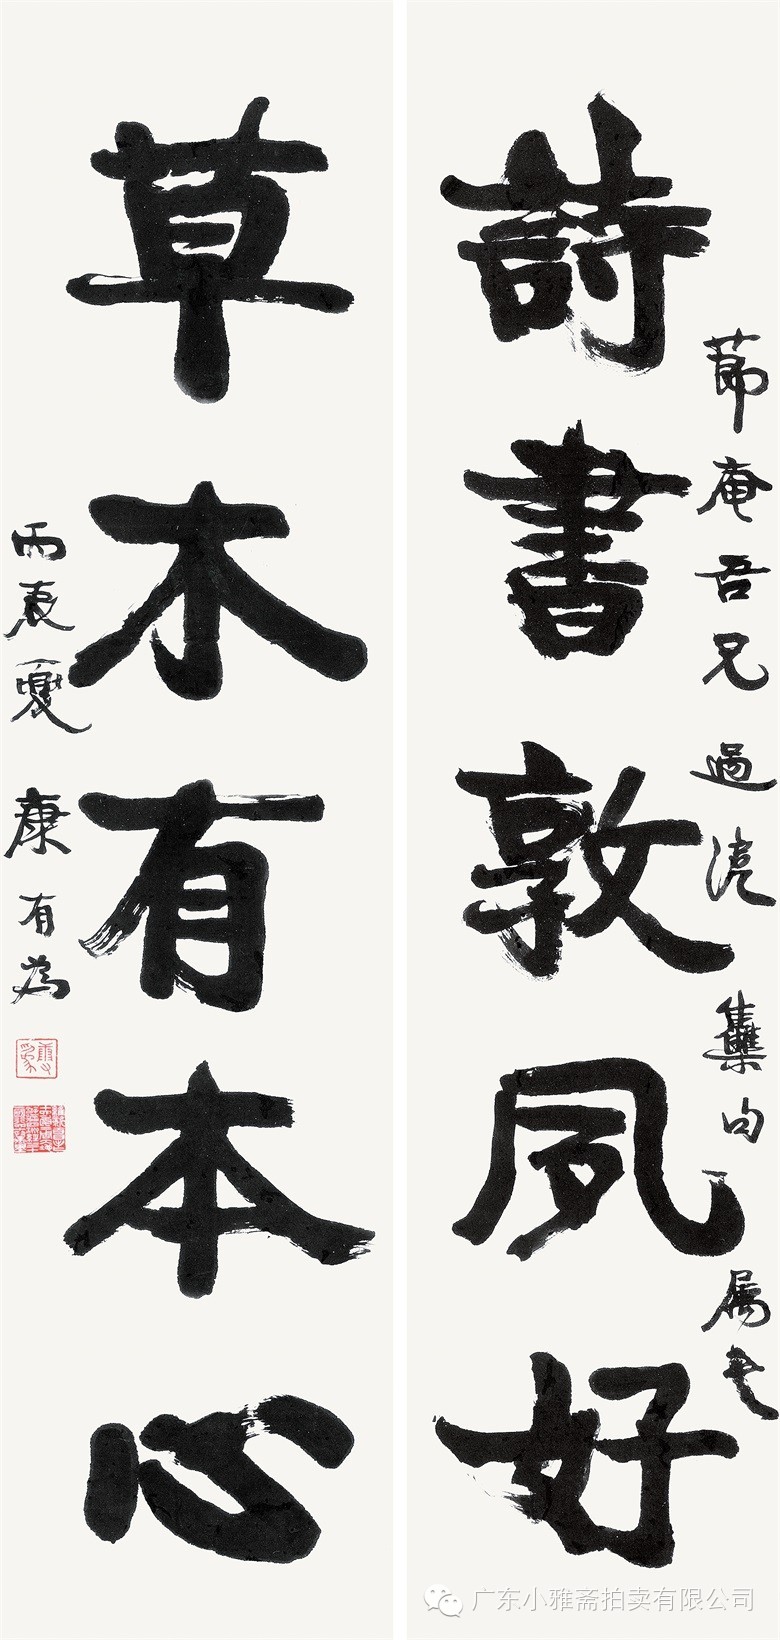 詩書敦夙好
節庵吾兄過滬集句属書
草木有本心
丙辰夏康有為
广东小雅斋拍卖有限公司